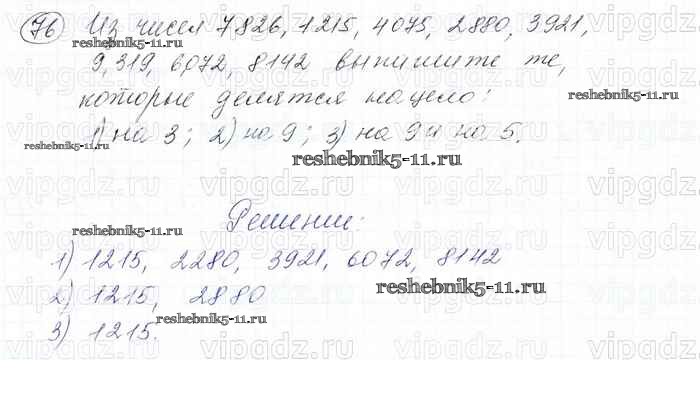 76 Из чисел 7826, 1215, 4075, 2880, 3921,
9,319, 6072, 8142 выпишите те,
которые делятся нацело:
1) на 3; 2) на 9; 3) на 9 и на 5.
Решение:
1) 1215, 2280, 3921, 6072, 8142
2) 1215, 2880
3) 1215.
reshebnik5-11.ru
reshebnik5-11.ru
reshebnik5-11.ru
reshebnik5-11.ru
reshebnik5-11.ru
reshebnik5-11.ru
reshebnik5-11.ru
vipgdz.ru vipgdz.ru vipgdz.ru vipgdz.ru